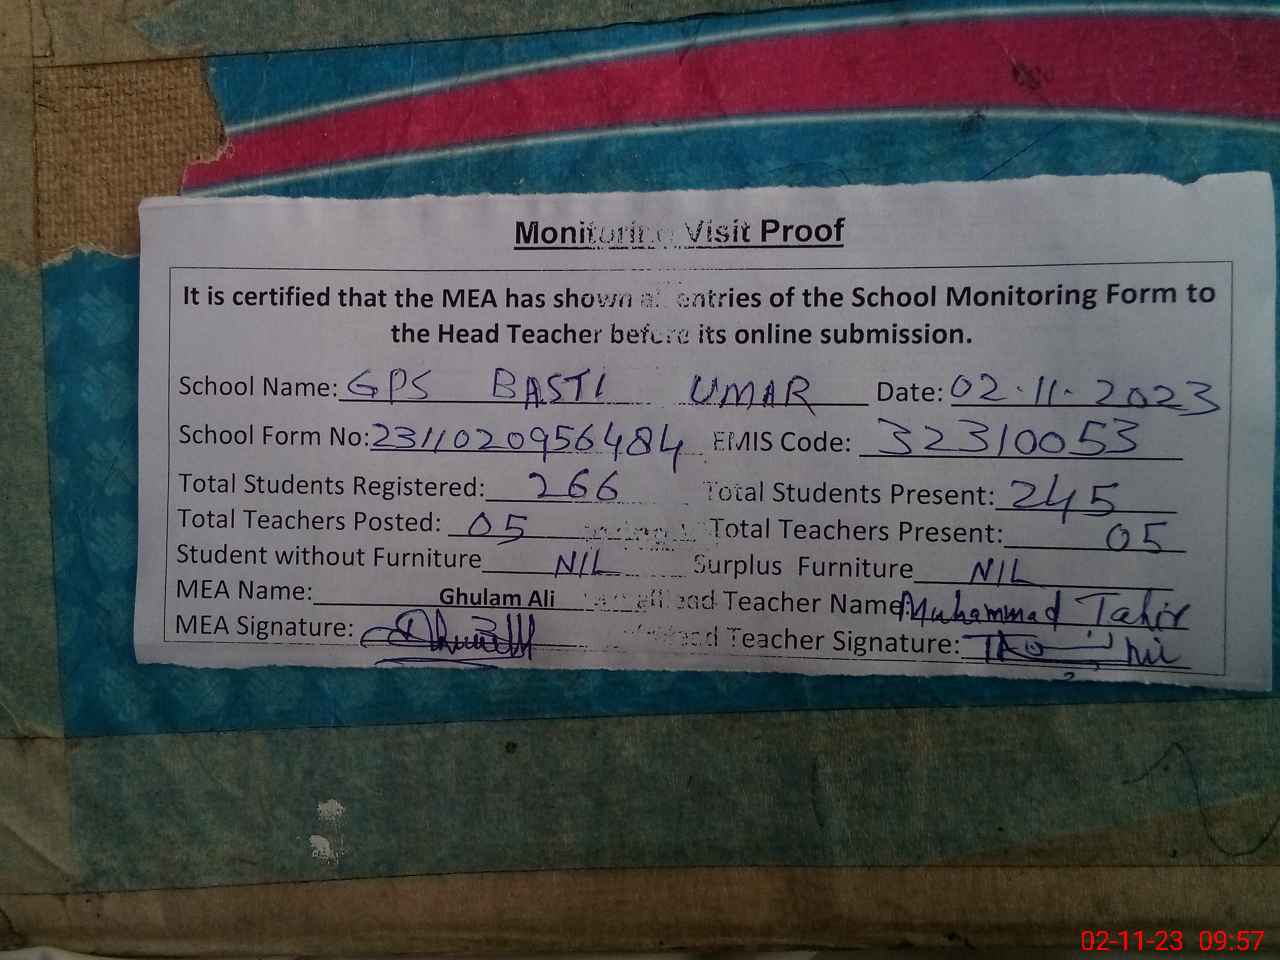 Monitoring Visit Proof
It is certified that the MEA has shown all entries of the School Monitoring Form to
the Head Teacher before its online submission.
School Name: GPS BASTI UMAR Date: 02.11.2023
School Form No: 2311020956484 EMIS Code: 32310053
Total Students Registered: 266 Total Students Present: 245
Total Teachers Posted: 05 Total Teachers Present: 05
Student without Furniture NIL Surplus Furniture NIL
MEA Name: Ghulam Ali Head Teacher Name: Muhammad Tahir
MEA Signature: Head Teacher Signature:
02-11-23 09:57